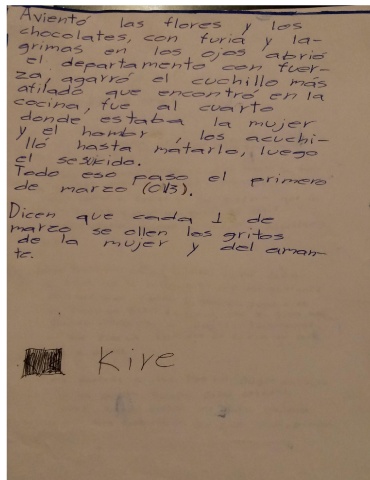 Aventó las flores y los
chocolates, con furia y la-
grimas en los ojos abrio
el departamento con fuer-
za, agarró el cuchillo más
afilado que encontró en la
cocina, fue al cuarto
donde estaba la mujer
y el hombr, los acuchi-
lló hasta mátarlo, luego
el sesuicido.
Todo eso paso el primero
de marzo (01/3).
Dicen que cada 1 de
marzo se ollen los gritos
de la mujer y del aman-
te.
Kire